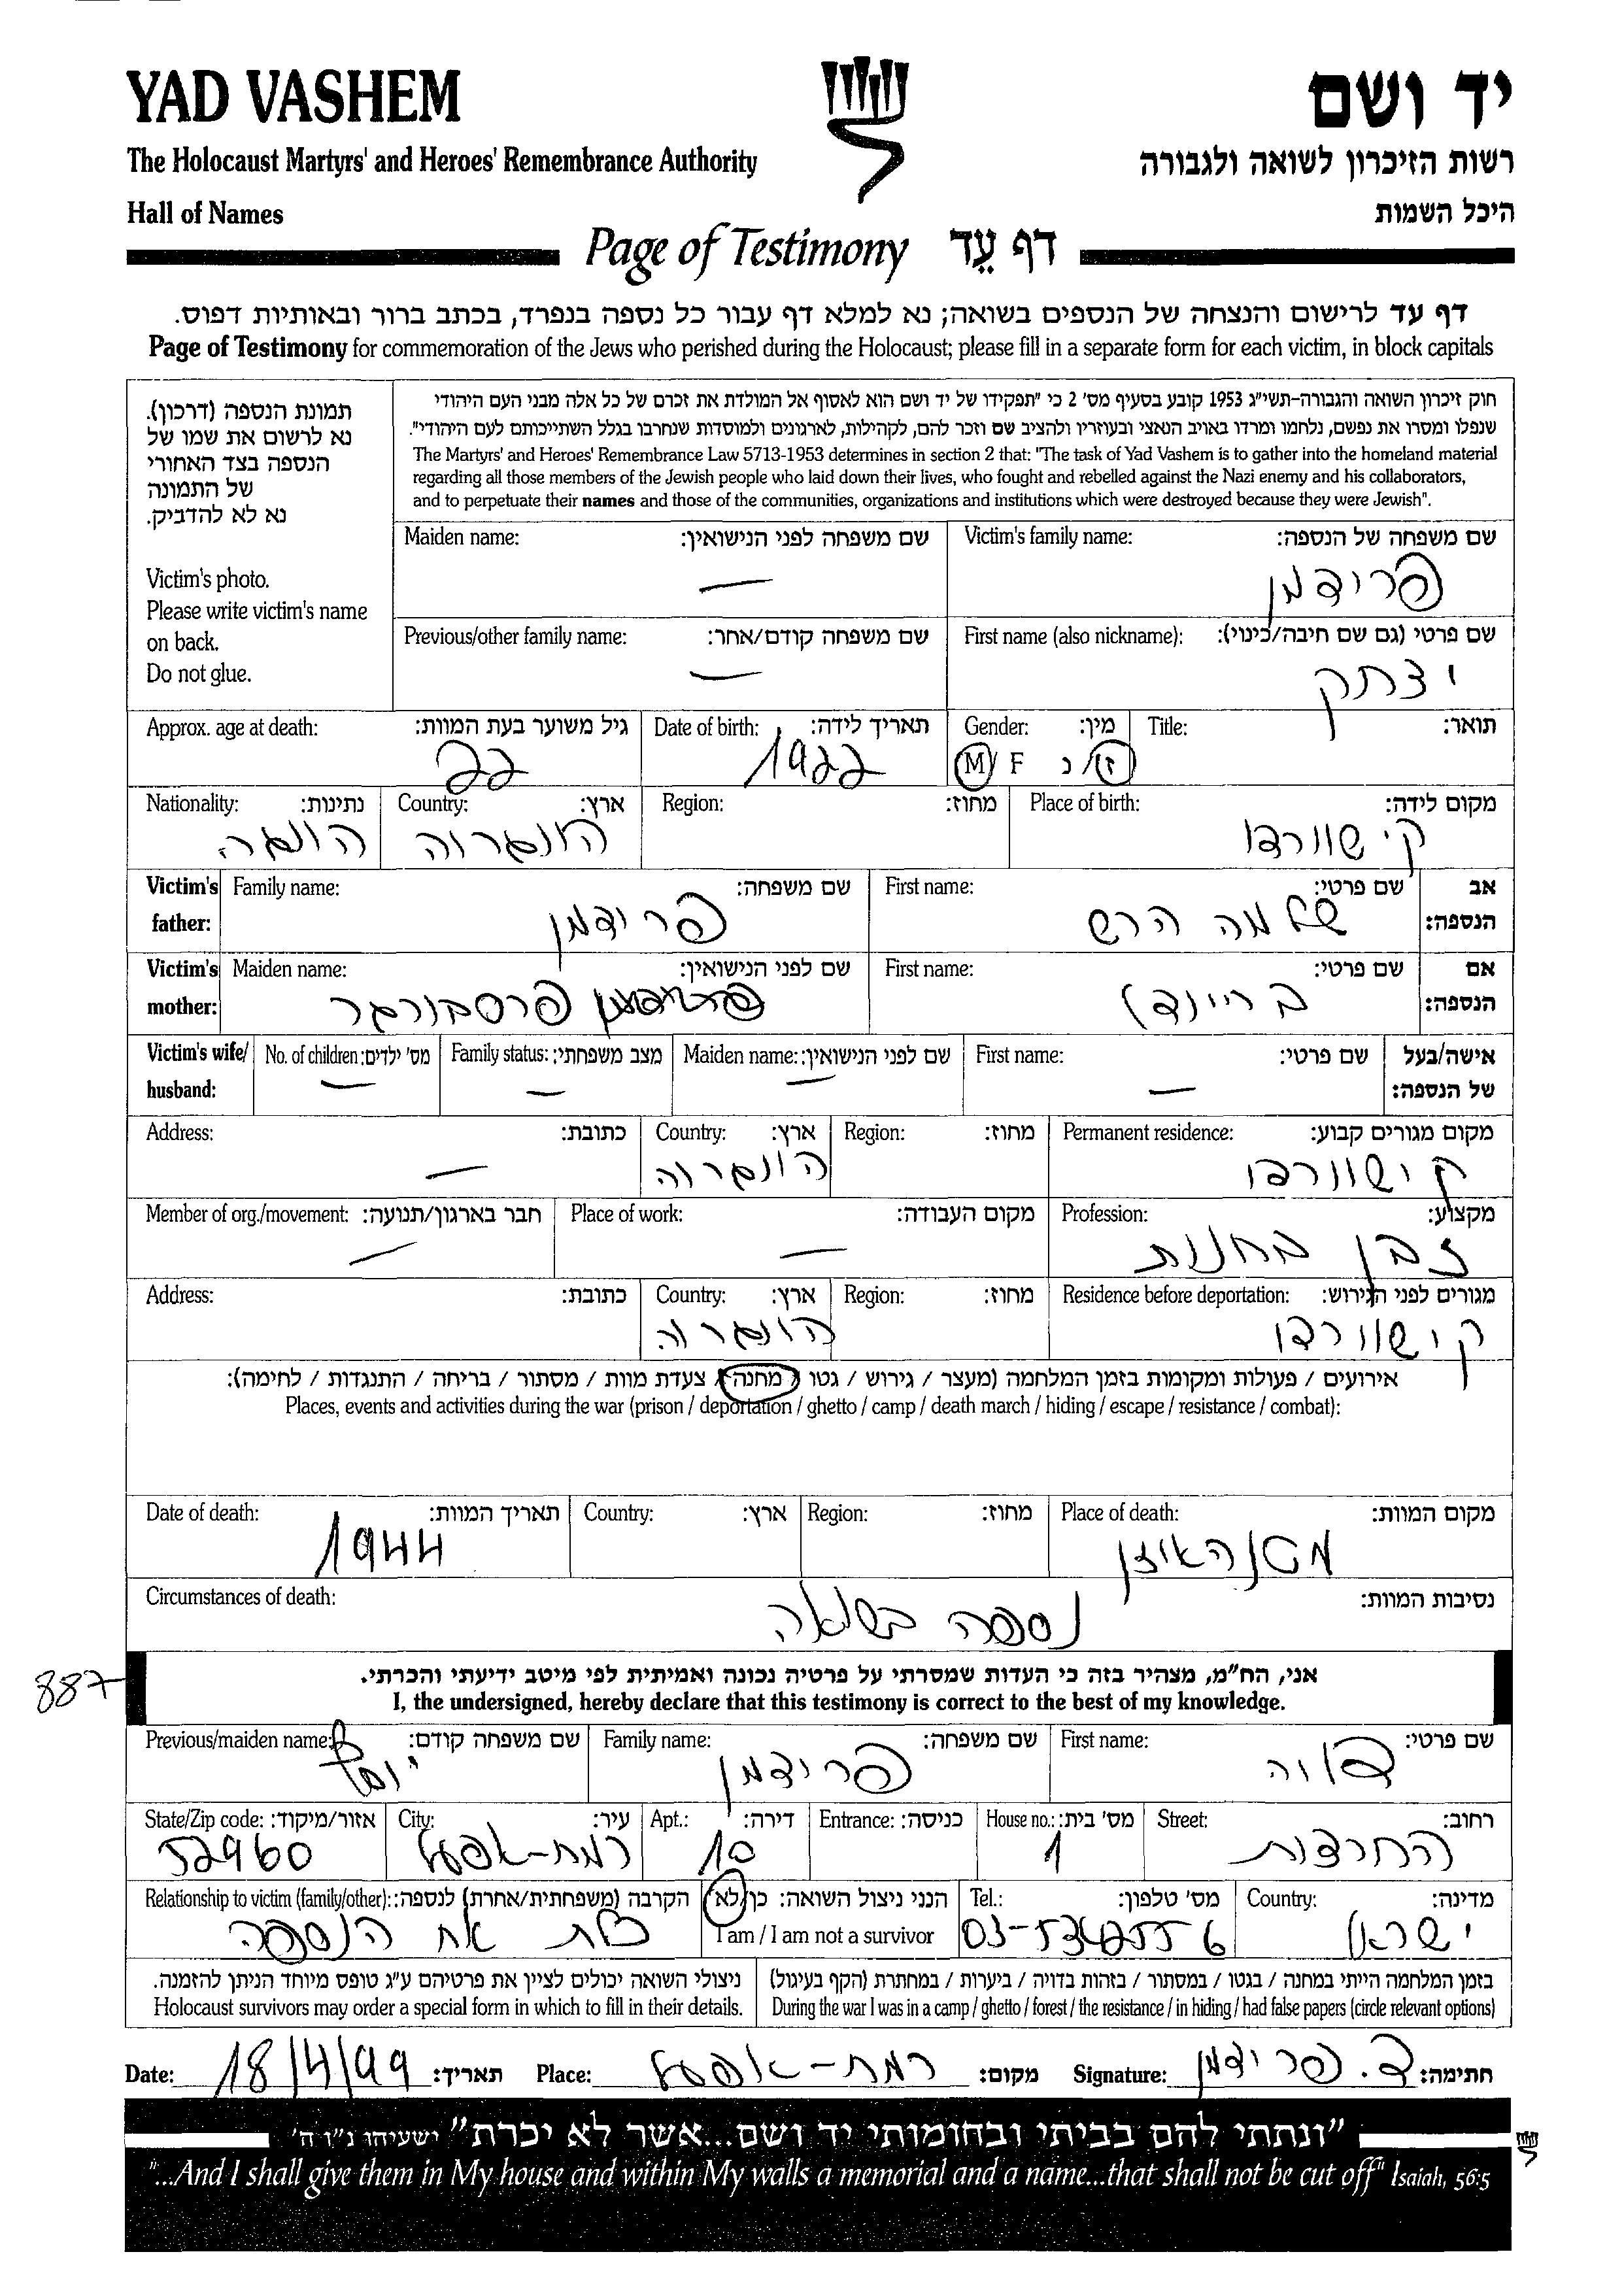 YAD VASHEM יד ושם
The Holocaust Martyrs' and Heroes' Remembrance Authority רשות הזיכרון לשואה ולגבורה
Hall of Names היכל השמות
Page of Testimony דף עֵד
דף עד לרישום והנצחה של הנספים בשואה; נא למלא דף עבור כל נספה בנפרד, בכתב ברור ובאותיות דפוס.
Page of Testimony for commemoration of the Jews who perished during the Holocaust; please fill in a separate form for each victim, in block capitals
תמונת הנספה (דרכון).
נא לרשום את שמו של
הנספה בצד האחורי
של התמונה
נא לא להדביק.
Victim's photo.
Please write victim's name
on back.
Do not glue.
חוק זיכרון השואה והגבורה-תשי"ג 1953 קובע בסעיף מס' 2 כי "תפקידו של יד ושם הוא לאסוף אל המולדת את זכרם של כל אלה מבני העם היהודי
שנפלו ומסרו את נפשם, נלחמו ומרדו באויב הנאצי ובעוזריו ולהציב שם וזכר להם, לקהילות, לארגונים ולמוסדות שנחרבו בגלל השתייכותם לעם היהודי".
The Martyrs' and Heroes' Remembrance Law 5713-1953 determines in section 2 that: "The task of Yad Vashem is to gather into the homeland material
regarding all those members of the Jewish people who laid down their lives, who fought and rebelled against the Nazi enemy and his collaborators,
and to perpetuate their names and those of the communities, organizations and institutions which were destroyed because they were Jewish".
Maiden name: שם משפחה לפני הנישואין: Victim's family name: שם משפחה של הנספה:
— פרידמן
Previous/other family name: שם משפחה קודם/אחר: First name (also nickname): שם פרטי (גם שם חיבה/כינוי):
— יצחק
Approx. age at death: גיל משוער בעת המוות: Date of birth: תאריך לידה: Gender: מין: Title: תואר:
22 1922 M / F ז / נ
Nationality: נתינות: Country: ארץ: Region: מחוז: Place of birth: מקום לידה:
הונגרוה ק' שוורדו
Victim's father: Family name: שם משפחה: First name: שם פרטי: אב הנספה:
פרידמן שלמה הרש
Victim's mother: Maiden name: שם לפני הנישואין: First name: שם פרטי: אם הנספה:
פרסבורגר בריינדל
Victim's wife/ husband: No. of children: מס' ילדים: Family status: מצב משפחתי: Maiden name: שם לפני הנישואין: First name: שם פרטי: אישה/בעל של הנספה:
— — — —
Address: כתובת: Country: ארץ: Region: מחוז: Permanent residence: מקום מגורים קבוע:
— הונגרוה קישוורדו
Member of org./movement: חבר בארגון/תנועה: Place of work: מקום העבודה: Profession: מקצוע:
— — זבן בחנות
Address: כתובת: Country: ארץ: Region: מחוז: Residence before deportation: מגורים לפני הגירוש:
הונגרוה קישוורדו
אירועים / פעולות ומקומות בזמן המלחמה (מעצר / גירוש / גטו / מחנה / צעדת מוות / מסתור / בריחה / התנגדות / לחימה):
Places, events and activities during the war (prison / deportation / ghetto / camp / death march / hiding / escape / resistance / combat):
Date of death: תאריך המוות: Country: ארץ: Region: מחוז: Place of death: מקום המוות:
1944 מטנהאוזן
Circumstances of death: נסיבות המוות:
נספה בשואה
אני, הח"מ, מצהיר בזה כי העדות שמסרתי על פרטיה נכונה ואמיתית לפי מיטב ידיעתי והכרתי.
I, the undersigned, hereby declare that this testimony is correct to the best of my knowledge.
887
Previous/maiden name: שם משפחה קודם: Family name: שם משפחה: First name: שם פרטי:
פרידמן
State/Zip code: אזור/מיקוד: City: עיר: Apt.: דירה: Entrance: כניסה: House no.: מס' בית: Street: רחוב:
52960 רמת-אפעל 10 1
Relationship to victim (family/other): הקרבה (משפחתית/אחרת) לנספה: הנני ניצול השואה: כן/לא Tel.: מס' טלפון: Country: מדינה:
בת אח הנספה I am / I am not a survivor 03-5342556 ישראל
ניצולי השואה יכולים לציין את פרטיהם ע"ג טופס מיוחד הניתן להזמנה. בזמן המלחמה הייתי במחנה / בגטו / במסתור / בזהות בדויה / ביערות / במחתרת (הקף בעיגול)
Holocaust survivors may order a special form in which to fill in their details. During the war I was in a camp / ghetto / forest / the resistance / in hiding / had false papers (circle relevant options)
Date: 18/4/99 תאריך: Place: רמת-אפעל מקום: Signature: פרידמן חתימה:
"ונתתי להם בביתי ובחומותי יד ושם...אשר לא יכרת" ישעיהו נ"ו ה'
"...And I shall give them in My house and within My walls a memorial and a name...that shall not be cut off" Isaiah, 56:5